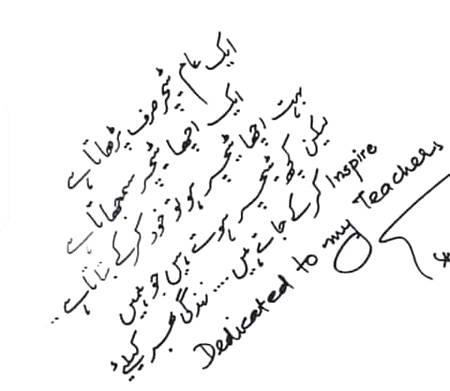 ایک عام ٹیچر صرف پڑھاتا ہے
ایک اچھا ٹیچر سمجھاتا ہے
بہت اچھا ٹیچر ہو تو خود کرکے بتاتا ہے ..
لیکن کچھ ٹیچر ہوتے ہیں جو ہمیں
Inspire کرکے جاتے ہیں .... زندگی بھر کیلئے
Dedicated to my Teachers